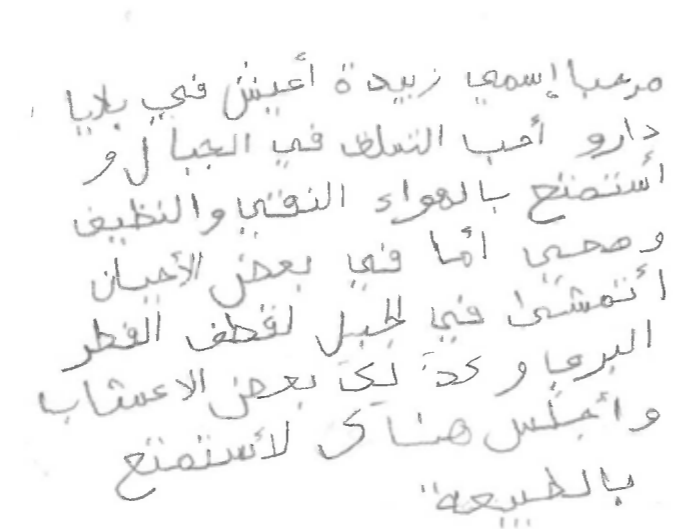 مرحبا إسمي زبيدة أعيش في بلايا
دارو أحب التسلق في الجبال و
أستمتع بالهواء النقي والنظيف
وصحي أما في بعض الأحيان
أتمشى في الجبل لقطف الفطر
البري و كذلك بعض الاعشاب
وأجلس هناك لأستمتع
بالطبيعة